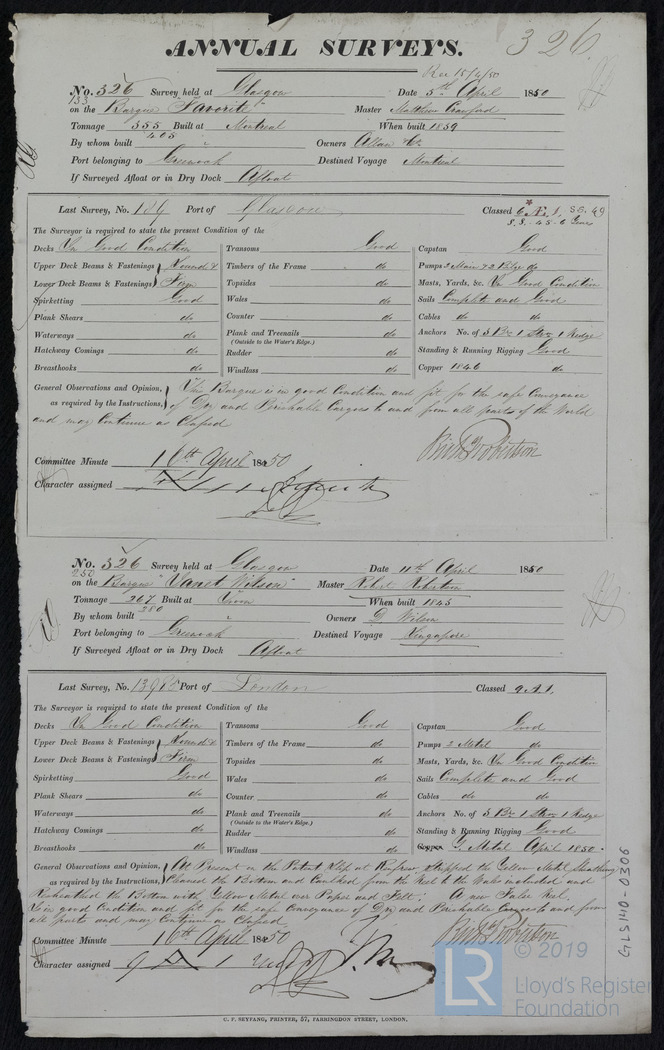 ANNUAL SURVEYS.
326
Rec 15/4/50
No. 326 Survey held at Glasgow Date 5th April 1850
133
on the Barque "Favorite" Master Matthew Crawford
Tonnage 355 Built at Montreal When built 1839
By whom built 405 Owners Allan & Co.
Port belonging to Greenock Destined Voyage Montreal
If Surveyed Afloat or in Dry Dock Afloat
Last Survey, No. 189 Port of Glasgow Classed 6 Æ 1, SG. 49
S.S. - 45 - 6 Years
The Surveyor is required to state the present Condition of the
Decks In Good Condition Transoms Good Capstan Good
Upper Deck Beams & Fastenings Sound & Timbers of the Frame do Pumps 2 Main & 2 Bilge do
Lower Deck Beams & Fastenings Firm Topsides do Masts, Yards, &c. In Good Condition
Spirketting Good Wales do Sails Complete and Good
Plank Shears do Counter do Cables do do
Waterways do Plank and Treenails do Anchors No. of 3 Br 1 Strm 1 Kedge
(Outside to the Water's Edge.)
Hatchway Comings do Rudder do Standing & Running Rigging Good
Breasthooks do Windlass do Copper 1846 do
General Observations and Opinion, This Barque is in good Condition and fit for the safe Conveyance
as required by the Instructions, of Dry and Perishable Cargoes to and from all parts of the World
and may Continue as Classed
Robertson
Committee Minute 16th April 1850
Character assigned
No. 326 Survey held at Glasgow Date 11th April 1850
250
on the Barque "Janet Wilson" Master Robert Robertson
Tonnage 267 Built at Irvine When built 1845
By whom built 280 Owners D. Wilson
Port belonging to Greenock Destined Voyage Singapore
If Surveyed Afloat or in Dry Dock Afloat
Last Survey, No. 13985 Port of London Classed 9 A 1,
The Surveyor is required to state the present Condition of the
Decks In Good Condition Transoms Good Capstan Good
Upper Deck Beams & Fastenings Sound & Timbers of the Frame do Pumps 2 Metal do
Lower Deck Beams & Fastenings Firm Topsides do Masts, Yards, &c. In Good Condition
Spirketting Good Wales do Sails Complete and Good
Plank Shears do Counter do Cables do do
Waterways do Plank and Treenails do Anchors No. of 3 Br 1 Strm 1 Kedge
(Outside to the Water's Edge.)
Hatchway Comings do Rudder do Standing & Running Rigging Good
Breasthooks do Windlass do Copper Y. Metal April 1850.
General Observations and Opinion, At Present on the Patent Slip at Renfrew, Stripped the Yellow Metal Sheathing
as required by the Instructions, Cleaned the Bottom and Caulked from the Keel to the Wales included and
Resheathed the Bottom with Yellow Metal over Paper and Felt. A new False Keel.
Is in good Condition and fit for the safe Conveyance of Dry and Perishable Cargoes to and from
all parts and may Continue as Classed
Robertson
Committee Minute 16th April 1850
Character assigned 9 A 1
GLS140-0306
C. F. SEYFANG, PRINTER, 57, FARRINGDON STREET, LONDON.
© 2019
LR
Lloyd's Register
Foundation